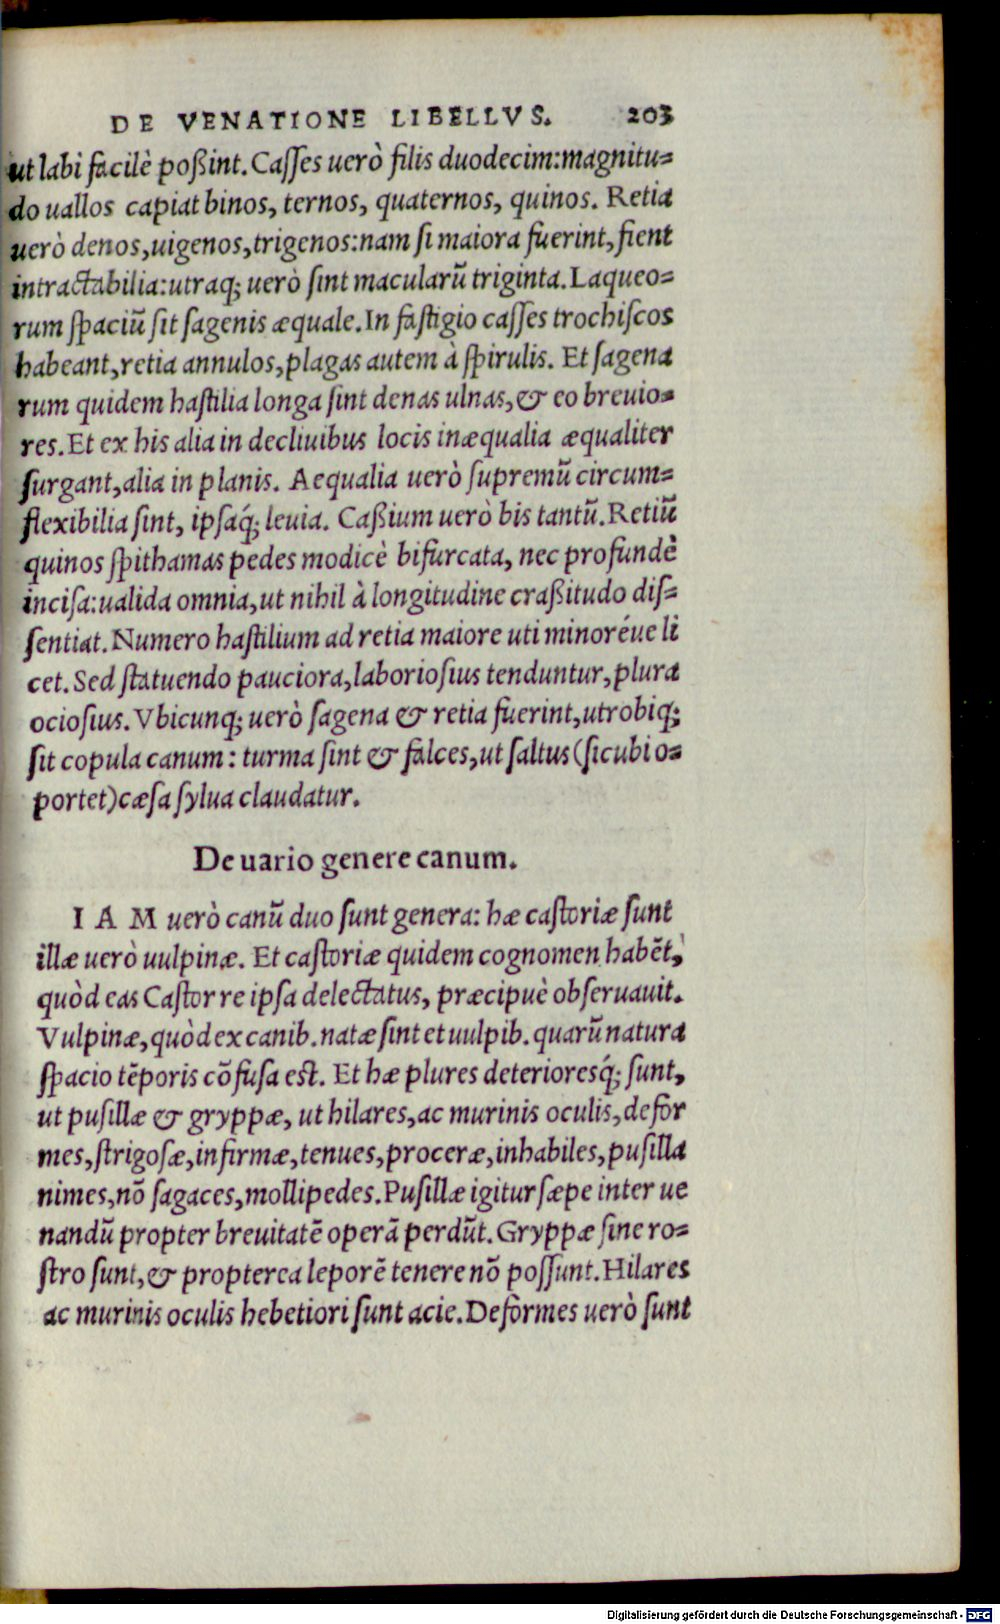 DE VENATIONE LIBELLVS. 203
ut labi facilè poßint. Casses uerò filis duodecim:magnitu=
do uallos capiat binos, ternos, quaternos, quinos. Retia
uerò denos,uigenos,trigenos:nam si maiora fuerint,fient
intractabilia:utraq; uerò sint macularũ triginta.Laqueo=
rum spaciũ sit sagenis æquale.In fastigio casses trochiscos
habeant,retia annulos,plagas autem à spirulis. Et sagena
rum quidem hastilia longa sint denas ulnas,& eo breuio=
res.Et ex his alia in decliuibus locis inæqualia æqualiter
surgant,alia in planis. Aequalia uerò supremũ circum=
flexibilia sint, ipsaq́; leuia. Caßium uerò bis tantũ.Retiũ
quinos spithamas pedes modicè bifurcata, nec profundè
incisa:ualida omnia,ut nihil à longitudine craßitudo dis=
sentiat.Numero hastilium ad retia maiore uti minoréue li
cet.Sed statuendo pauciora,laboriosius tenduntur,plura
ociosius.Vbicunq; uerò sagena & retia fuerint,utrobiq;
sit copula canum: turma sint & falces,ut saltus(sicubi o=
portet)cæsa sylua claudatur.
De uario genere canum.
IAM uerò canũ duo sunt genera: hæ castoriæ sunt
illæ uerò uulpinæ. Et castoriæ quidem cognomen habẽt,
quòd eas Castor re ipsa delectatus, præcipuè obseruauit.
Vulpinæ,quòd ex canib.natæ sint et uulpib.quarũ natura
spacio tẽporis cõfusa est. Et hæ plures deterioresq́; sunt,
ut pusillæ & gryppæ, ut hilares,ac murinis oculis,defor
mes,strigosæ,infirmæ,tenues,proceræ,inhabiles,pusilla
nimes,nõ sagaces,mollipedes.Pusillæ igitur sæpe inter ue
nandũ propter breuitatẽ operã perdũt.Gryppæ sine ro=
stro sunt,& propterea leporẽ tenere nõ possunt.Hilares
ac murinis oculis hebetiori sunt acie.Deformes uerò sunt
Digitalisierung gefördert durch die Deutsche Forschungsgemeinschaft - DFG